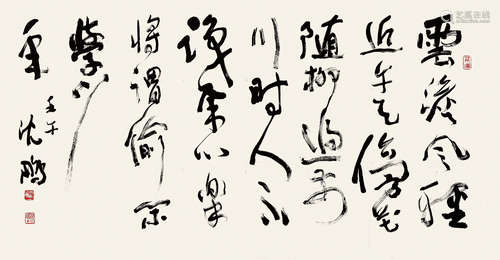 雲淡風輕
近午天傍花
隨柳過前
川時人不
識余心樂
將謂偷閑
學少
年
壬午
沈鵬